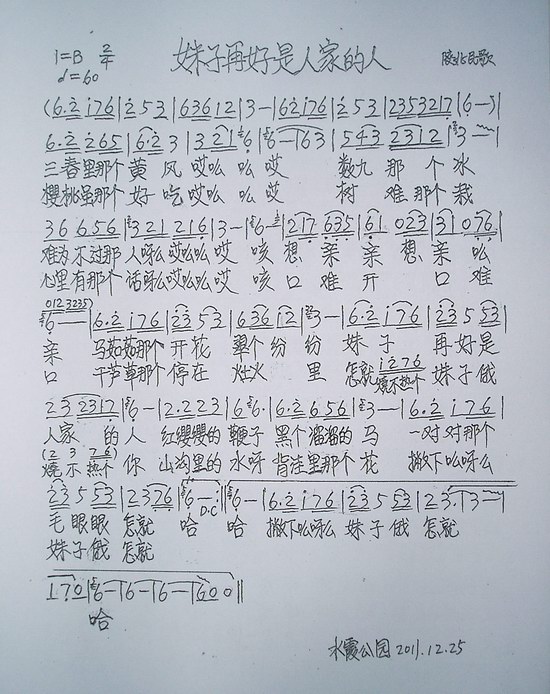 妹子再好是人家的人
1=B 2/4
♩=60
陕北民歌
(6·2 i76|2 53|63612|3-|62i76|2 53|2353217|6-)|
6·2 265|6·2 3|3 21 6|6-163|543 2312|3~~|
三春里那个黄 风 哎么么哎 数九那个冰
樱桃虽那个好 吃 哎么么哎 树难那个栽
36 656|321 216|3-|6-|217 635|61 023|31076|
难为不过那人呀么哎么么哎 咳想亲亲想亲么
心里有那个话呀么哎么么哎 咳口难开 口难
012 3235)
6--|6·2 i76|23 53|636 i2|3-|6·2 i76|23 53|
亲 马茹茹那个开花 翠个纷纷 妹子 再好是
口 干芦草那个停在 灶火里 怎就 妹子俄
i 2 76
烧不热个
23 2317|6-|2·223|6 6·|6·2 656|3-|6·2 i76|
人家 的人 红缨缨的鞭子黑个溜溜的马 一对对那个
(2 3 76)
烧不热个 你 山沟里的水呀背洼里那个花 撇下么呀么
23 5 53|2376|6-:|6-|6·2 i76|23 5 53|23·|3-|
D.C
毛眼眼 怎就 哈 哈 撇下么呀么妹子俄 怎就
妹子俄 怎就
170|6-|6-|6-|600‖
哈
水霞公园 2011.12.25